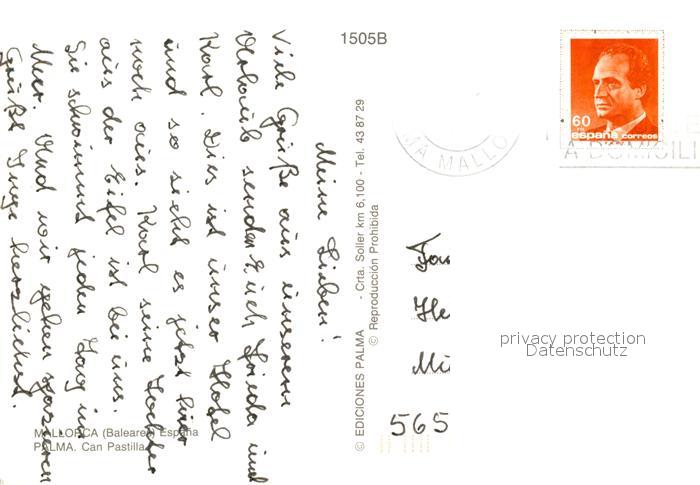 1505B
60
PTA
españa correos
MA MALLO
A DOMICILI
Meine Lieben!
Viele Grüße aus unserem
Urlaub senden Euch Frieda und
Karl. Dies ist unser Hotel
und so sieht es jetzt hier
noch aus. Karl seine Tochter
aus der Eifel ist bei uns.
Sie schwimmt jeden Tag im
Meer. Und wir gehen spazieren
Grüßt Inge herzlichst.
MALLORCA (Baleares) España
PALMA. Can Pastilla
© EDICIONES PALMA - Crta. Soller km 6,100 - Tel. 43 87 29
© Reproducción Prohibida
Fa
He
Mü
565
privacy protection
Datenschutz